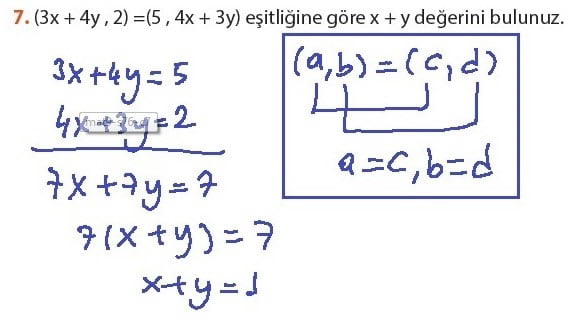 7. (3x + 4y , 2) =(5 , 4x + 3y) eşitliğine göre x + y değerini bulunuz.
3x+4y=5
4x+3y=2
7x+7y=7
7(x+y)=7
x+y=1
(a,b)=(c,d)
a=c,b=d